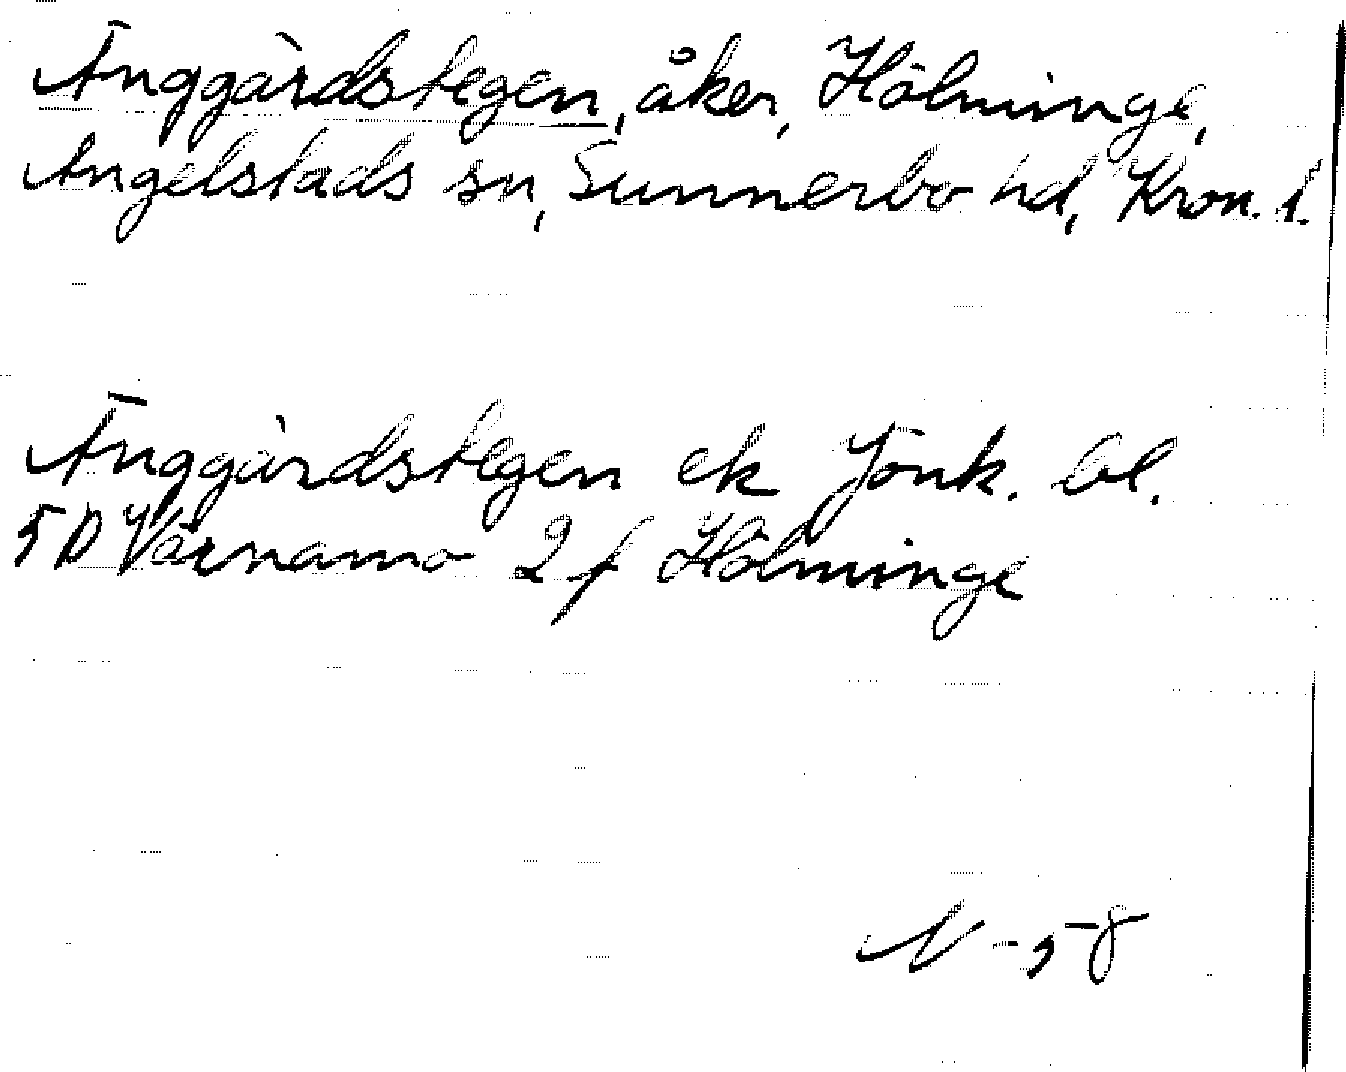 Änggårdstegen, åker, Hölminge,
Angelstads sn, Sunnerbo hd, Kron. l.
Änggårdstegen ek Jönk. bl.
5D Värnamo 2 f Hölminge
N -58